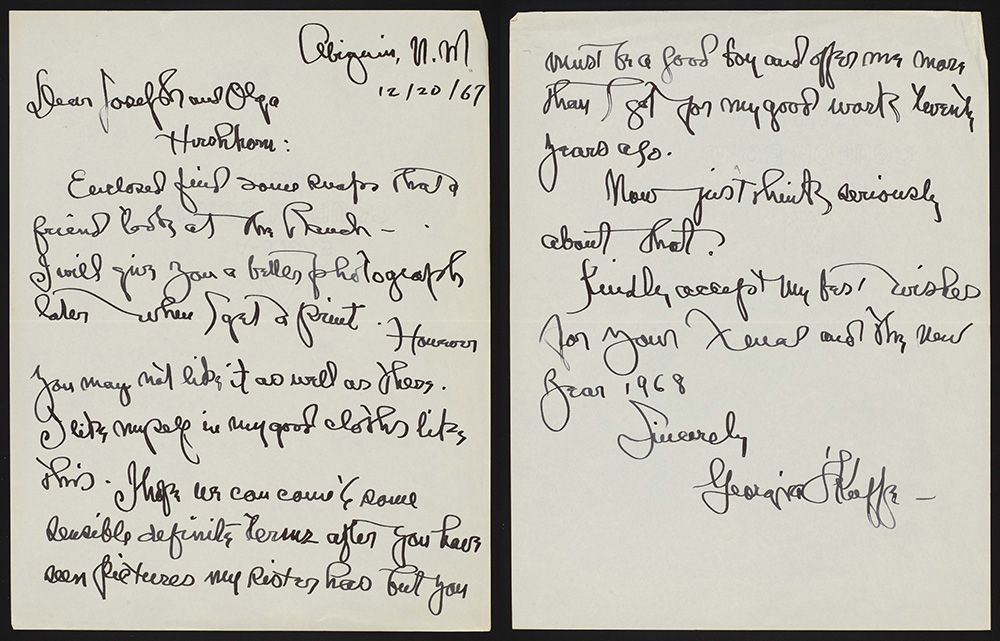 Abiquiu, N.M
12/20/67
Dear Joseph and Olga
Hirshhorn:
Enclosed find some snaps that a
friend took at the Ranch —
I will give you a better photograph
later when I get a print. However
you may not like it as well as these.
I like myself in my good cloths like
this. I hope we can come to some
sensible definite terms after you have
seen pictures my sister has but you
must be a good boy and offer me more
than I got for my good work twenty
years ago.
Now just think seriously
about that.
Kindly accept my best wishes
for your Xmas and the New
Year 1968
Sincerely
Georgia O'Keeffe —